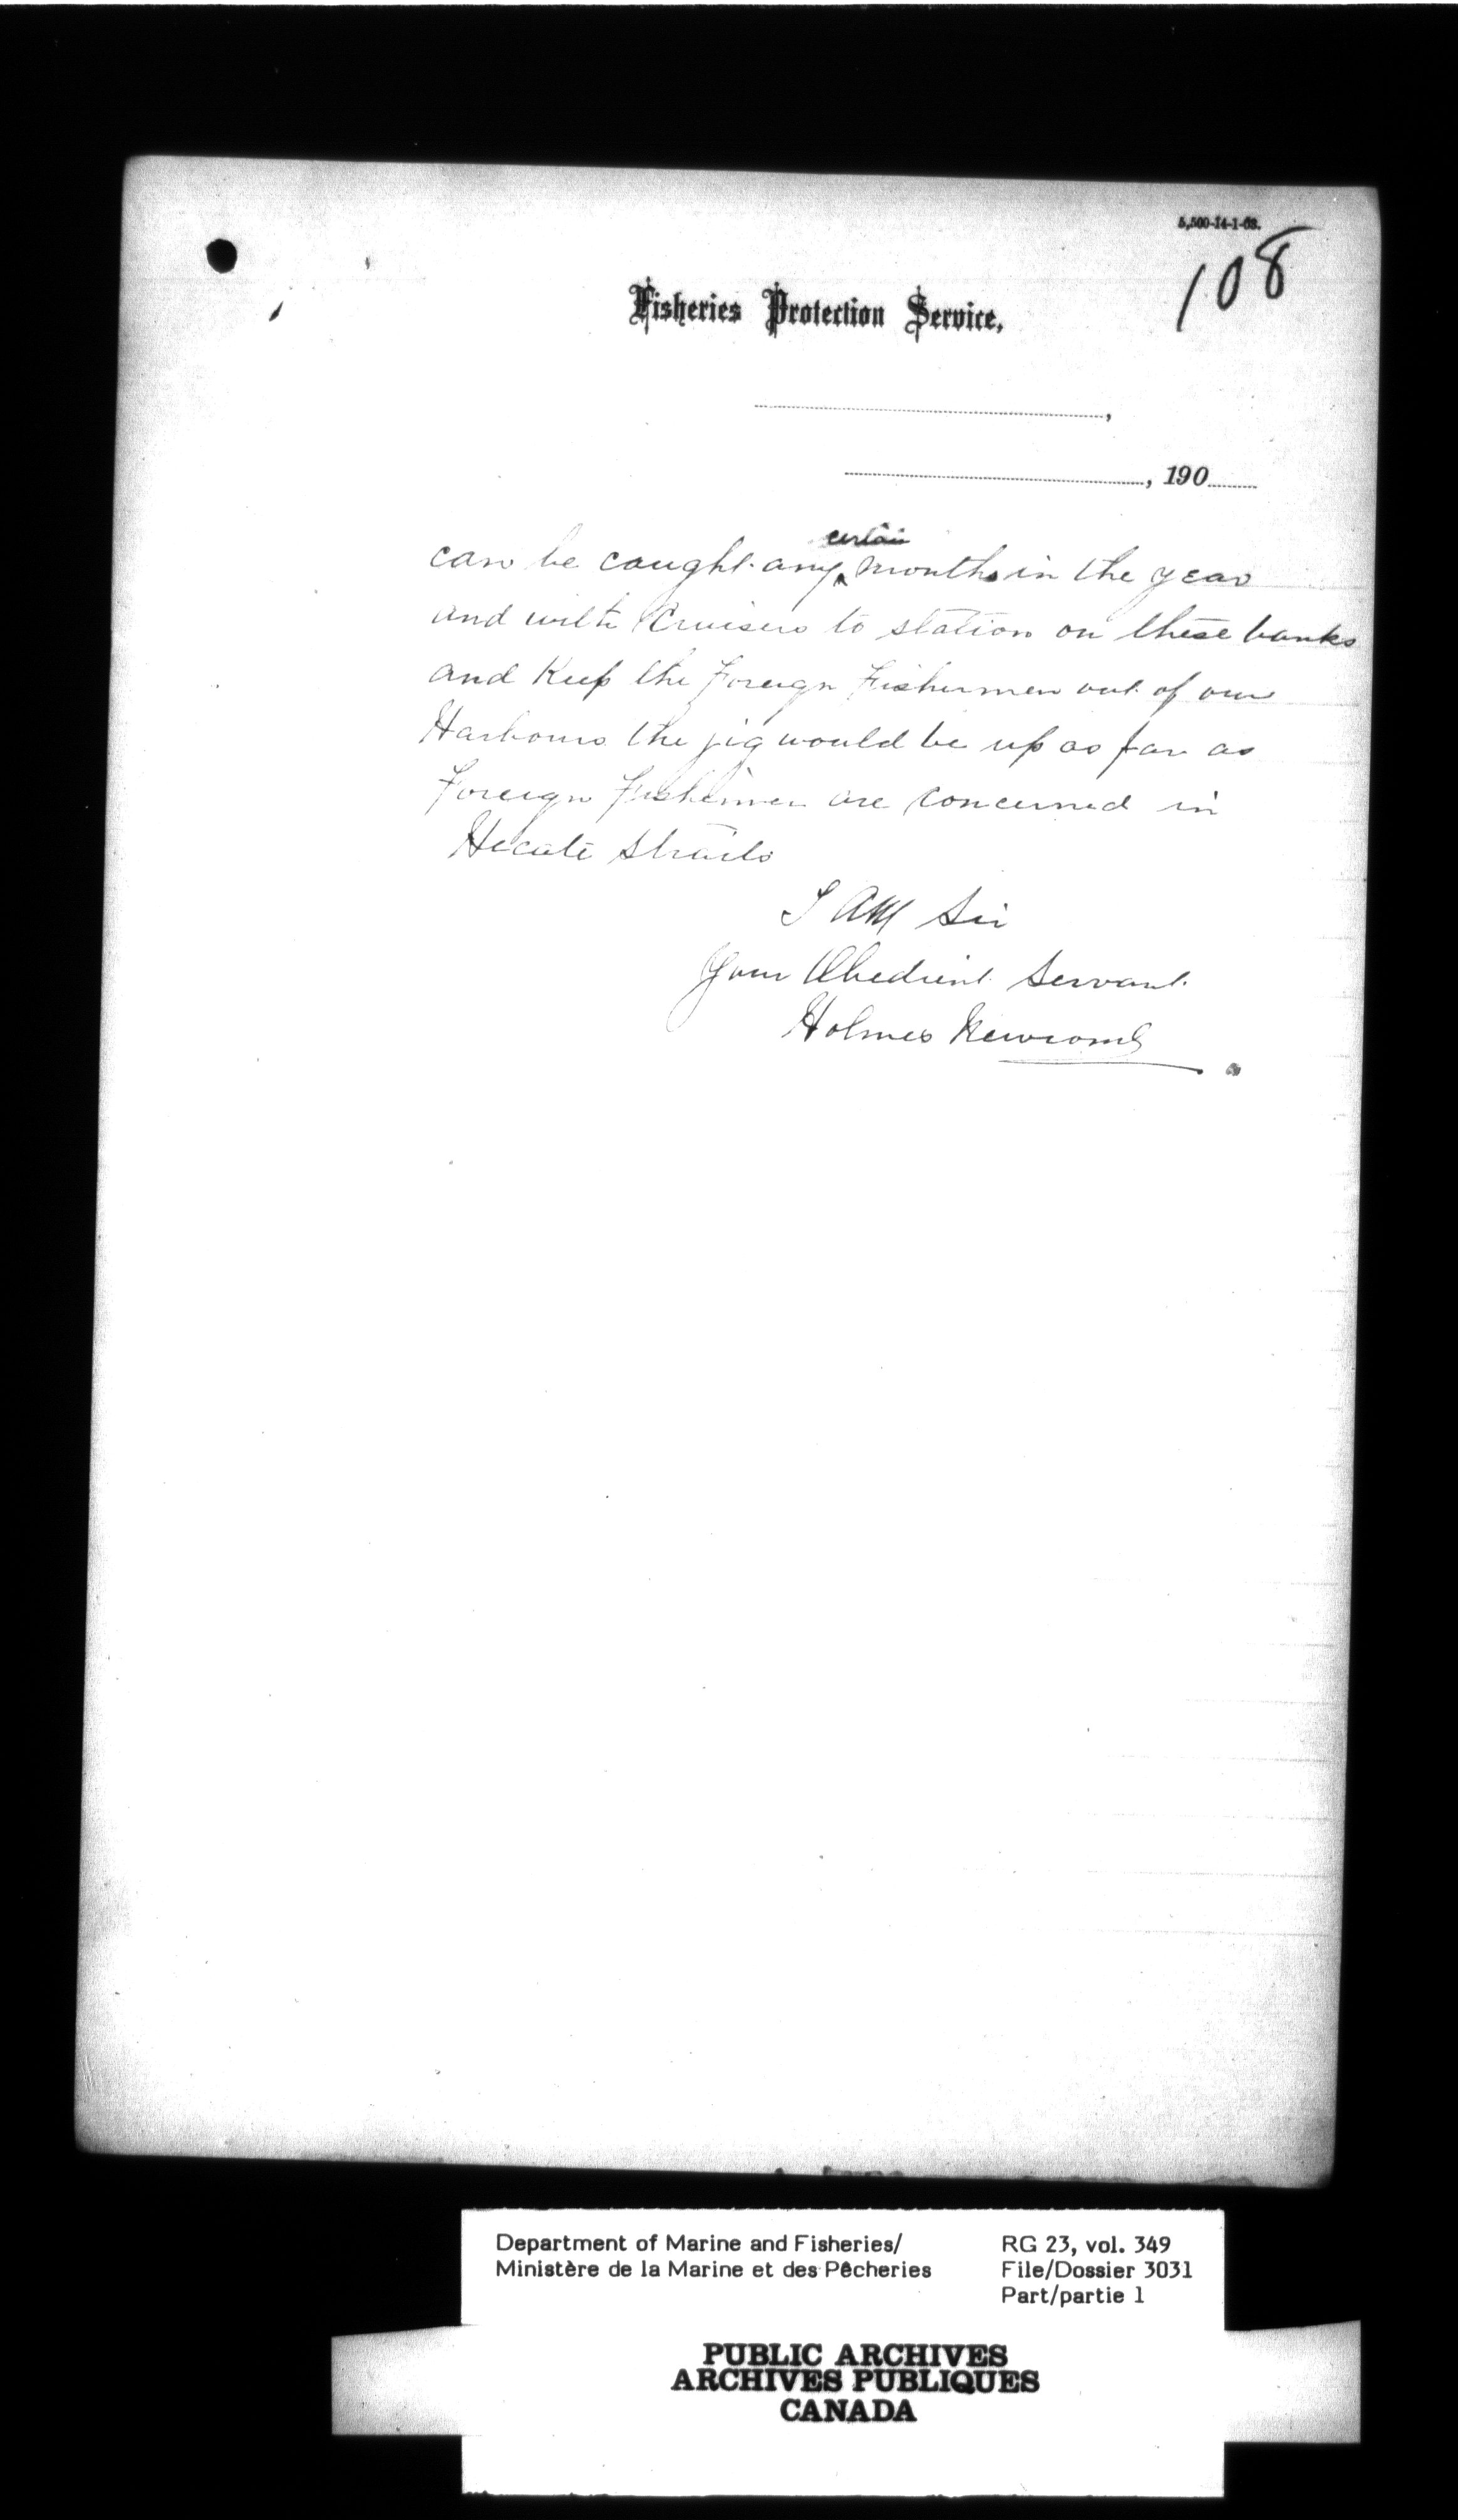 5,500-14-1-03.
108
Fisheries Protection Service.
, 190
certain
can be caught any months in the year
and with Cruisers to station on these banks
and Keep the Foreign Fishermen out of our
Harbours the jig would be up as far as
Foreign Fishermen are concerned in
Hecate Straits
I AM Sir
Your Obedient Servant
Holmes Newcomb
Department of Marine and Fisheries/ RG 23, vol. 349
Ministère de la Marine et des Pêcheries File/Dossier 3031
Part/partie 1
PUBLIC ARCHIVES
ARCHIVES PUBLIQUES
CANADA